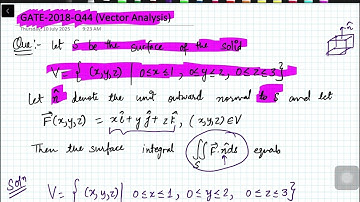 GATE-2018-Q44 (Vector Analysis)
Thursday, 10 July 2025 9:23 AM
Que:- Let S be the surface of the solid
V = { (x,y,z) | 0≤x≤1, 0≤y≤2, 0≤z≤3}
Let n̂ denote the unit outward normal to S and let
F⃗(x,y,z) = xî + yĵ + zk̂, (x,y,z)∈V
Then the surface integral ∬_S F⃗·n̂ds equals
Solⁿ
V = { (x,y,z) | 0≤x≤1, 0≤y≤2, 0≤z≤3}
n̂